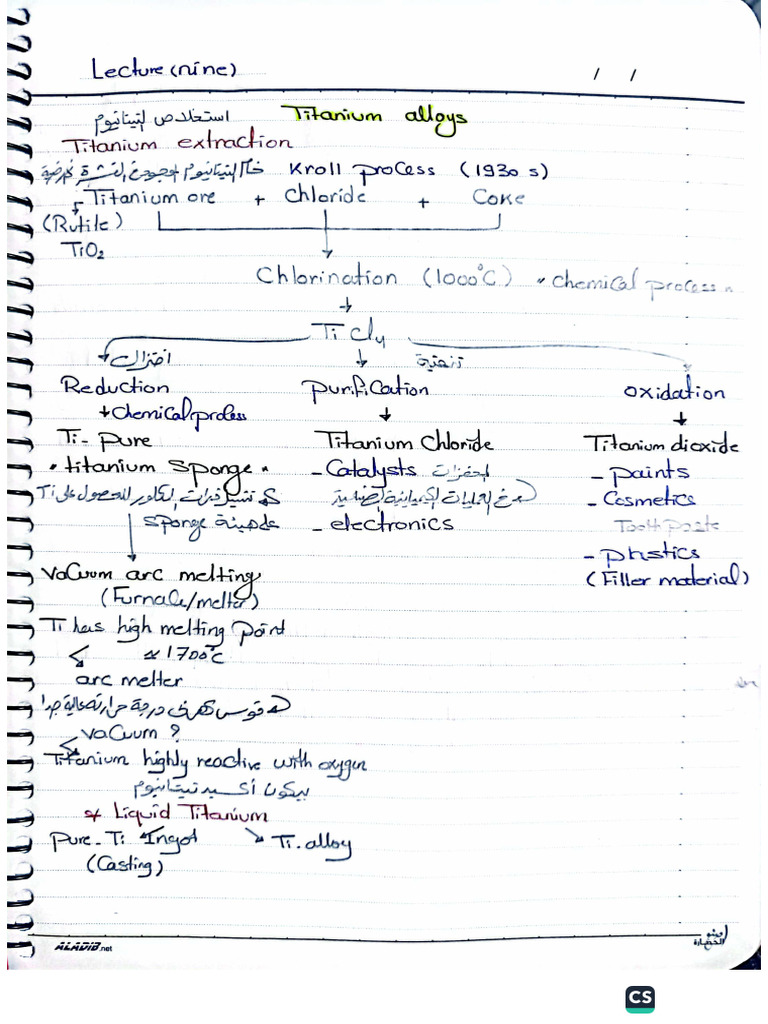 Lecture (nine)
/ /
استخلاص التيتانيوم Titanium alloys
Titanium extraction
خام التيتانيوم الموجود في القشرة الأرضية Kroll process (1930 s)
Titanium ore + Chloride + Coke
(Rutile)
TiO2
Chlorination (1000°C) "chemical process"
Ti Cl4
اختزال تنقية
Reduction purification oxidation
Chemical process
Ti- pure Titanium Chloride Titanium dioxide
"titanium sponge" - Catalysts المحفزات - paints
الكلور للحصول على Ti في العمليات الكيميائية الصناعية - Cosmetics
على هيئة sponge - electronics Tooth paste
- plastics
Vacuum arc melting (Filler material)
(Furnace/melter)
Ti has high melting point
≈ 1700°C
arc melter
قوس كهربي درجة حرارته عالية جدا
Vacuum ?
Titanium highly reactive with oxygen
بيكون أكسيد تيتانيوم
Liquid Titanium
Pure-Ti Ingot Ti.alloy
(Casting)
ALADIB.net
CS